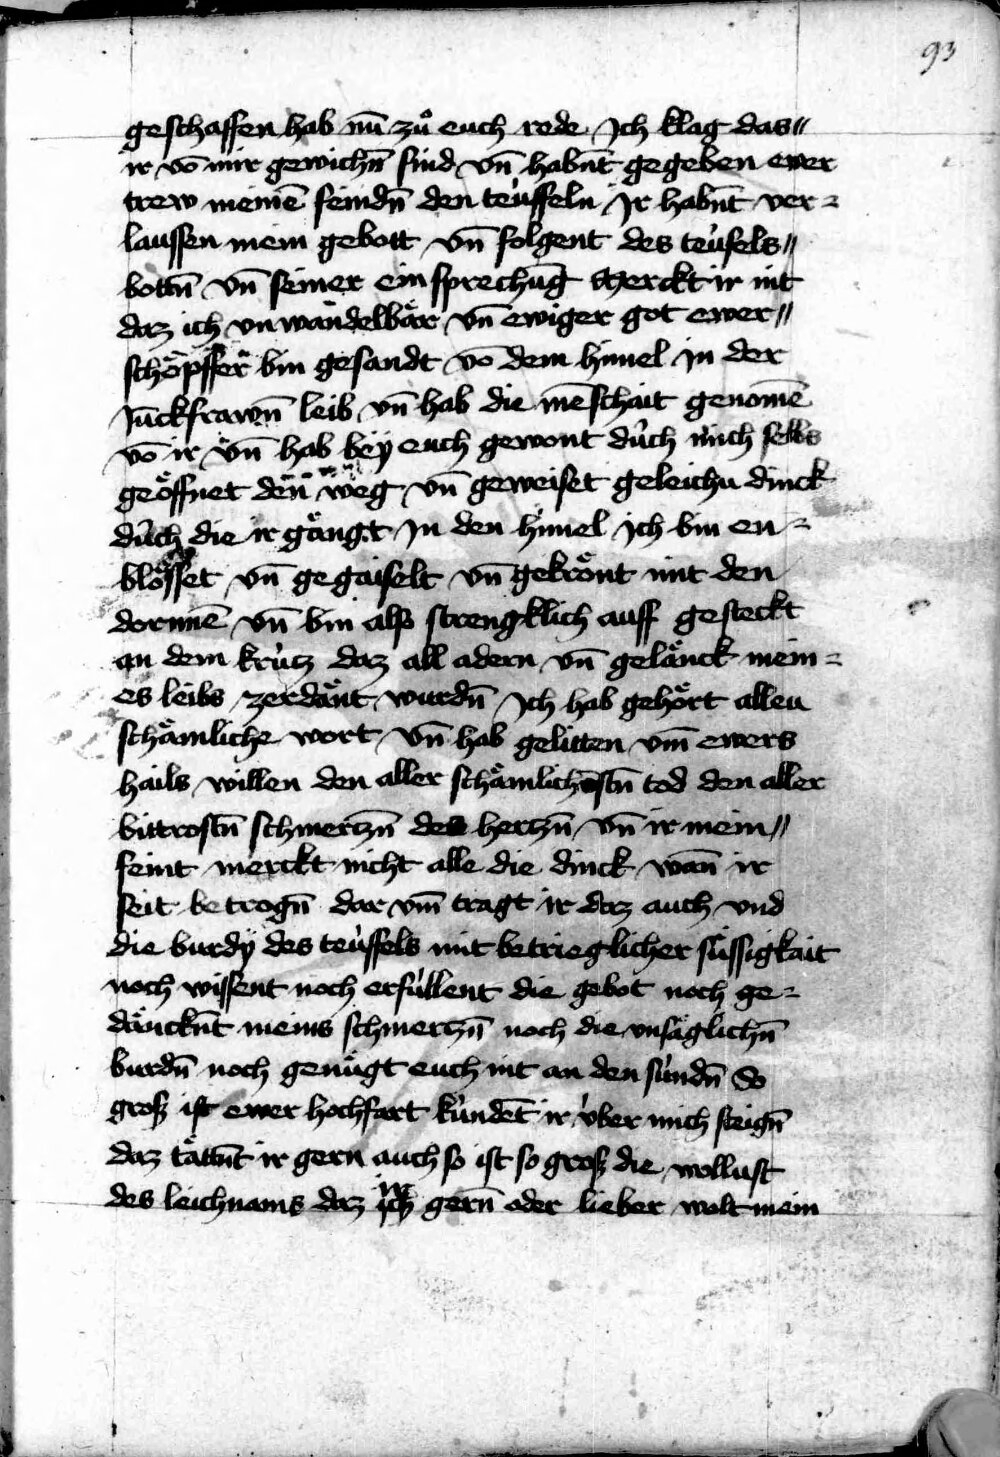 93
geschaffen hab nū zů euch rede Ich klag das//
ir vō mir gewichn̄ sind vn̄ habn̄t gegeben ewer
trew meinē feindn̄ den teu̇ffeln Ir habn̄t ver=
laussen mein gebott vn̄ folgent des teu̇fels//
bottn̄ vn̄ seiner ein sprechūg Merckt ir nit
daz ich vnwandelbår vn̄ ewiger got ewer//
schöpffer bin gesandt vō dem himel in der
Jūckfrawn̄ leib vn̄ hab die mēschait genomē
vō ir vn̄ hab beÿ euch gewont du̇ch mich selbs
geöffnet den weg vn̄ geweiset geleichn dinck
du̇ch die ir gångt In den himel Ich bin en=
blösset vn̄ gegaiselt vn̄ gekrönt mit den
dornnē vn̄ bin also strengklich auff gesteckt
an dem kru̇tz daz all adern vn̄ gelånck mein=
es leibs zerdånt wurdn̄ Ich hab gehört allen
schåmliche wort vn̄ hab gelitten vm̄ ewers
hails willen den aller schåmlichēstn̄ tod den aller
bittrostn̄ schmertzn̄ des hertzn̄ vn̄ ir mein//
feint merckt nicht alle die dinck wan̄ ir
seit betrogn̄ dar vm̄ tragt ir daz auch vnd
die burdÿ des teu̇ffels mit betrieglicher su̇ssigkait
noch wissent noch erfu̇llent die gebot noch ge=
dånckn̄t meins schmertzn̄ noch die vnsåglichn̄
burdn̄ noch genu̇gt euch nit an den su̇ndn̄ So
groß ist ewer hochfart ku̇ndēt ir u̇ber mich steign̄
daz tåttn̄t ir gern auch so ist so groß die wollust
des leichnams daz ir gern̄ oder lieber wolt mein